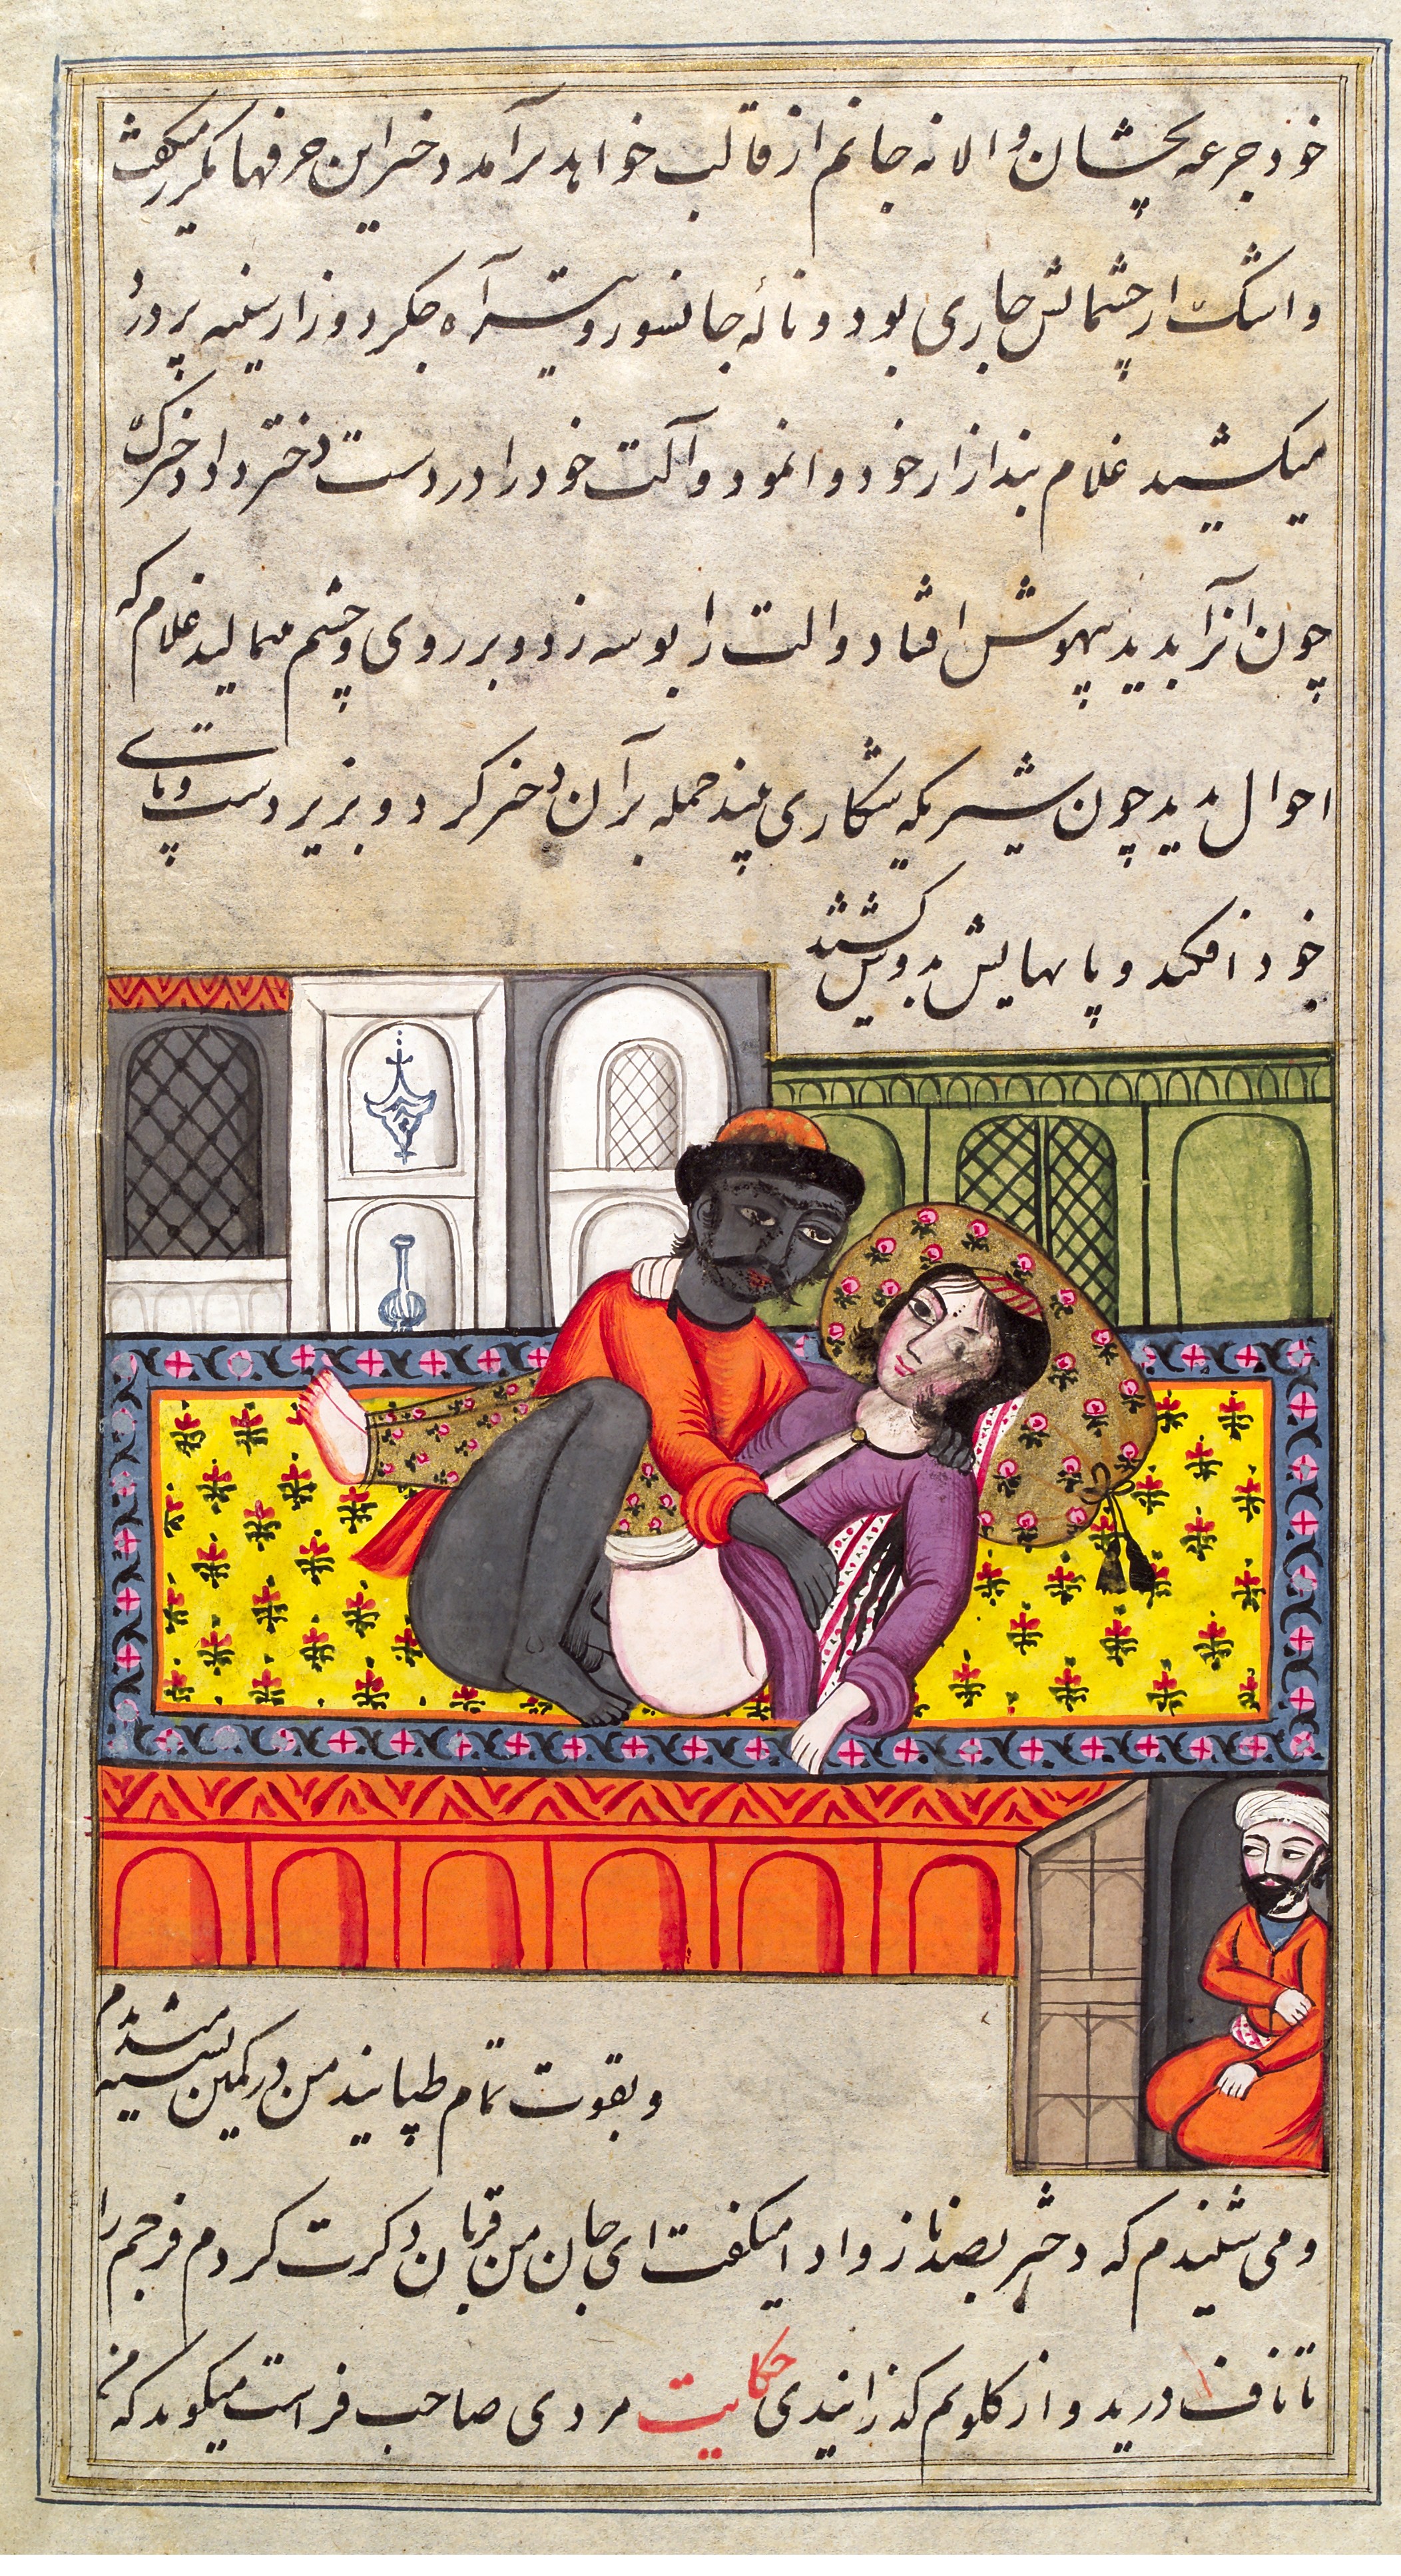 خود جرعه بچشان والا نه جانم از قالب خواهد برآمد دختر این حرفها مکرر میگفت
و اشک از چشمانش جاری بود و نالهٔ جانسوز و آه جگردوز از سینه پر درد
میکشید غلام بند ازار خود وا نمود و آلت خود را در دست دختر داد دخترک
چون آنرا بدید بیهوش افتاد و الت را بوسه زد و بر روی و چشم میمالید غلام که
احوال بدید چون شیریکه شکاری بیند حمله بر آن دختر کرد و بزیر دست و پای
خود افکند و پاهایش بدوش کشید
و بقوت تمام طپانید من در کمین نشسته
و می شنیدم که دختر بصد ناز و ادا میگفت ای جان من قربان کرت کردم فرجم را
تا ناف درید و از گلویم گذرانیدی حکایت مردی صاحب فراست میگوید که